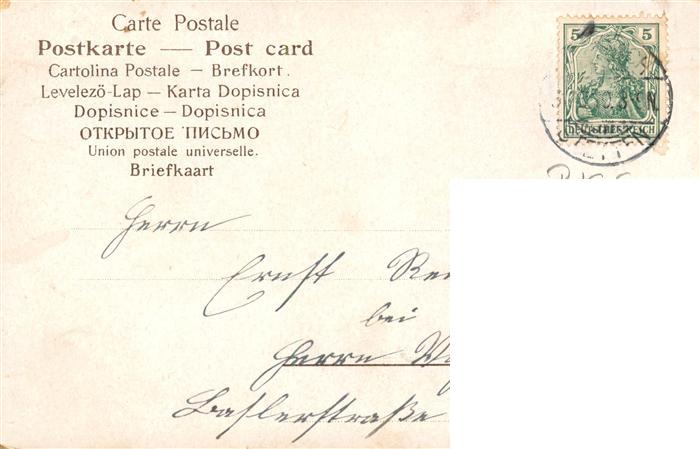 Carte Postale
Postkarte — Post card
Cartolina Postale – Brefkort.
Levelezö-Lap – Karta Dopisnica
Dopisnice – Dopisnica
ОТКРЫТОЕ ПИСЬМО
Union postale universelle.
Briefkaart
5 5
DEUTSCHES REICH
Herrn
Ernst
bei
Herrn
Baslerstraße